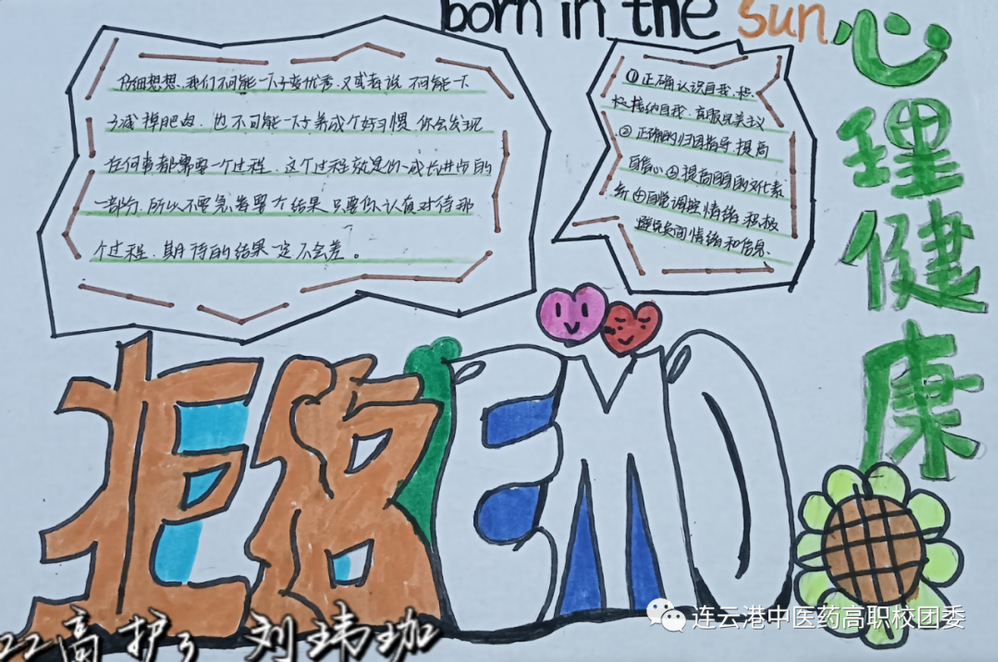 born in the sun
心理健康
仔细想想,我们不可能一下子变优秀,又或者说,不可能一下
子减掉肥肉,也不可能一下子养成个好习惯,你会发现
任何事都需要一个过程,这个过程就是你成长进步的
一部分,所以不要急着要个结果,只要你认真对待那
个过程,期待的结果一定不会差。
①正确认识自我,积
极接纳自我,克服完美主义
②正确的归因指导,提高
自信心③提高自身的文化素
养④自觉调控情绪,积极
避免负面情绪和信息.
拒绝EMO
22高护3 刘玮珈
连云港中医药高职校团委